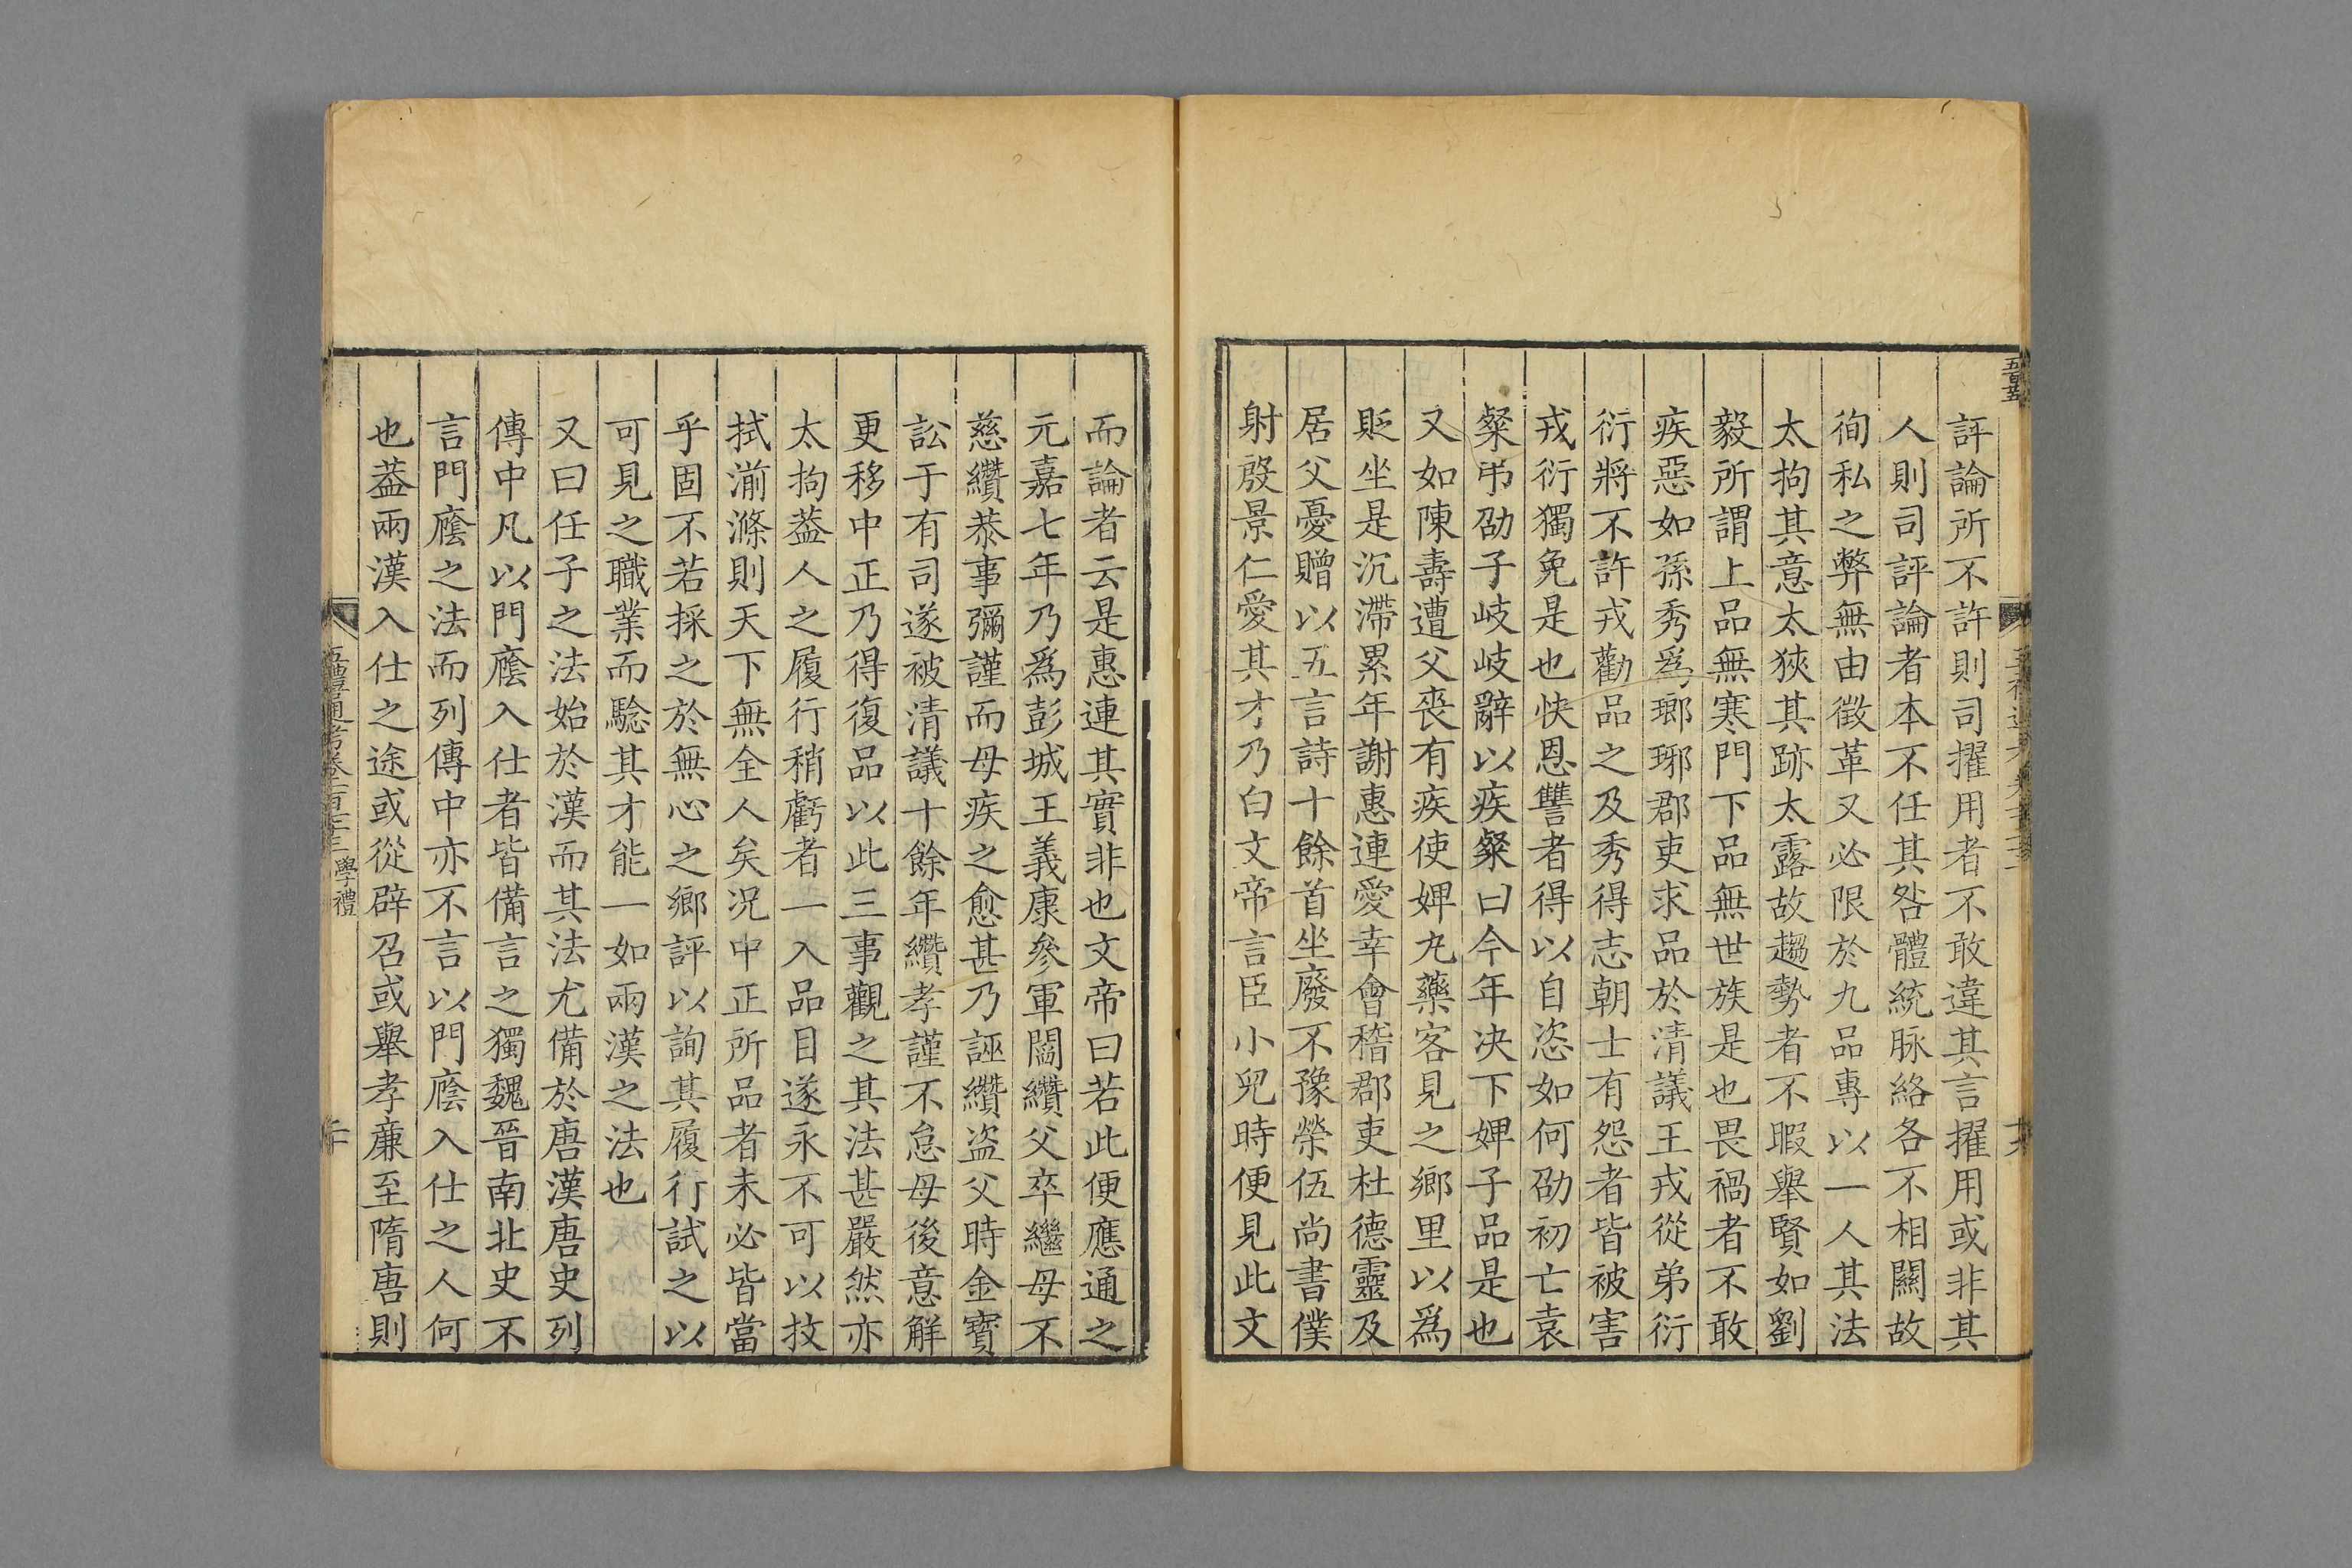 評論所不許則司擢用者不敢違其言擢用或非其
人則司評論者本不任其咎體統脉絡各不相關故
徇私之弊無由徵革又必限於九品專以一人其法
太拘其意太狹其跡太露故趨勢者不暇舉賢如劉
毅所謂上品無寒門下品無世族是也畏禍者不敢
疾惡如孫秀爲瑯琊郡吏求品於清議王戎從弟衍
衍將不許戎勸品之及秀得志朝士有怨者皆被害
戎衍獨免是也快恩讐者得以自恣如何劭初亡袁
粲弔劭子岐岐辭以疾粲曰今年决下婢子品是也
又如陳壽遭父喪有疾使婢丸藥客見之鄉里以爲
貶坐是沉滯累年謝惠連愛幸會稽郡吏杜德靈及
居父憂贈以五言詩十餘首坐廢不豫榮伍尚書僕
射殷景仁愛其才乃白文帝言臣小兒時便見此文
而論者云是惠連其實非也文帝曰若此便應通之
元嘉七年乃爲彭城王義康參軍閻纘父卒繼母不
慈纘恭事彌謹而母疾之愈甚乃誣纘盜父時金寶
訟于有司遂被清議十餘年纘孝謹不怠母後意解
更移中正乃得復品以此三事觀之其法甚嚴然亦
太拘葢人之履行稍虧者一入品目遂永不可以抆
拭湔滌則天下無全人矣况中正所品者未必皆當
乎固不若採之於無心之鄉評以詢其履行試之以
可見之職業而騐其才能一如兩漢之法也
又曰任子之法始於漢而其法尤備於唐漢唐史列
傳中凡以門廕入仕者皆備言之獨魏晉南北史不
言門廕之法而列傳中亦不言以門廕入仕之人何
也葢兩漢入仕之途或從辟召或舉孝亷至隋唐則
五禮通考卷一百七十三 學禮
二十